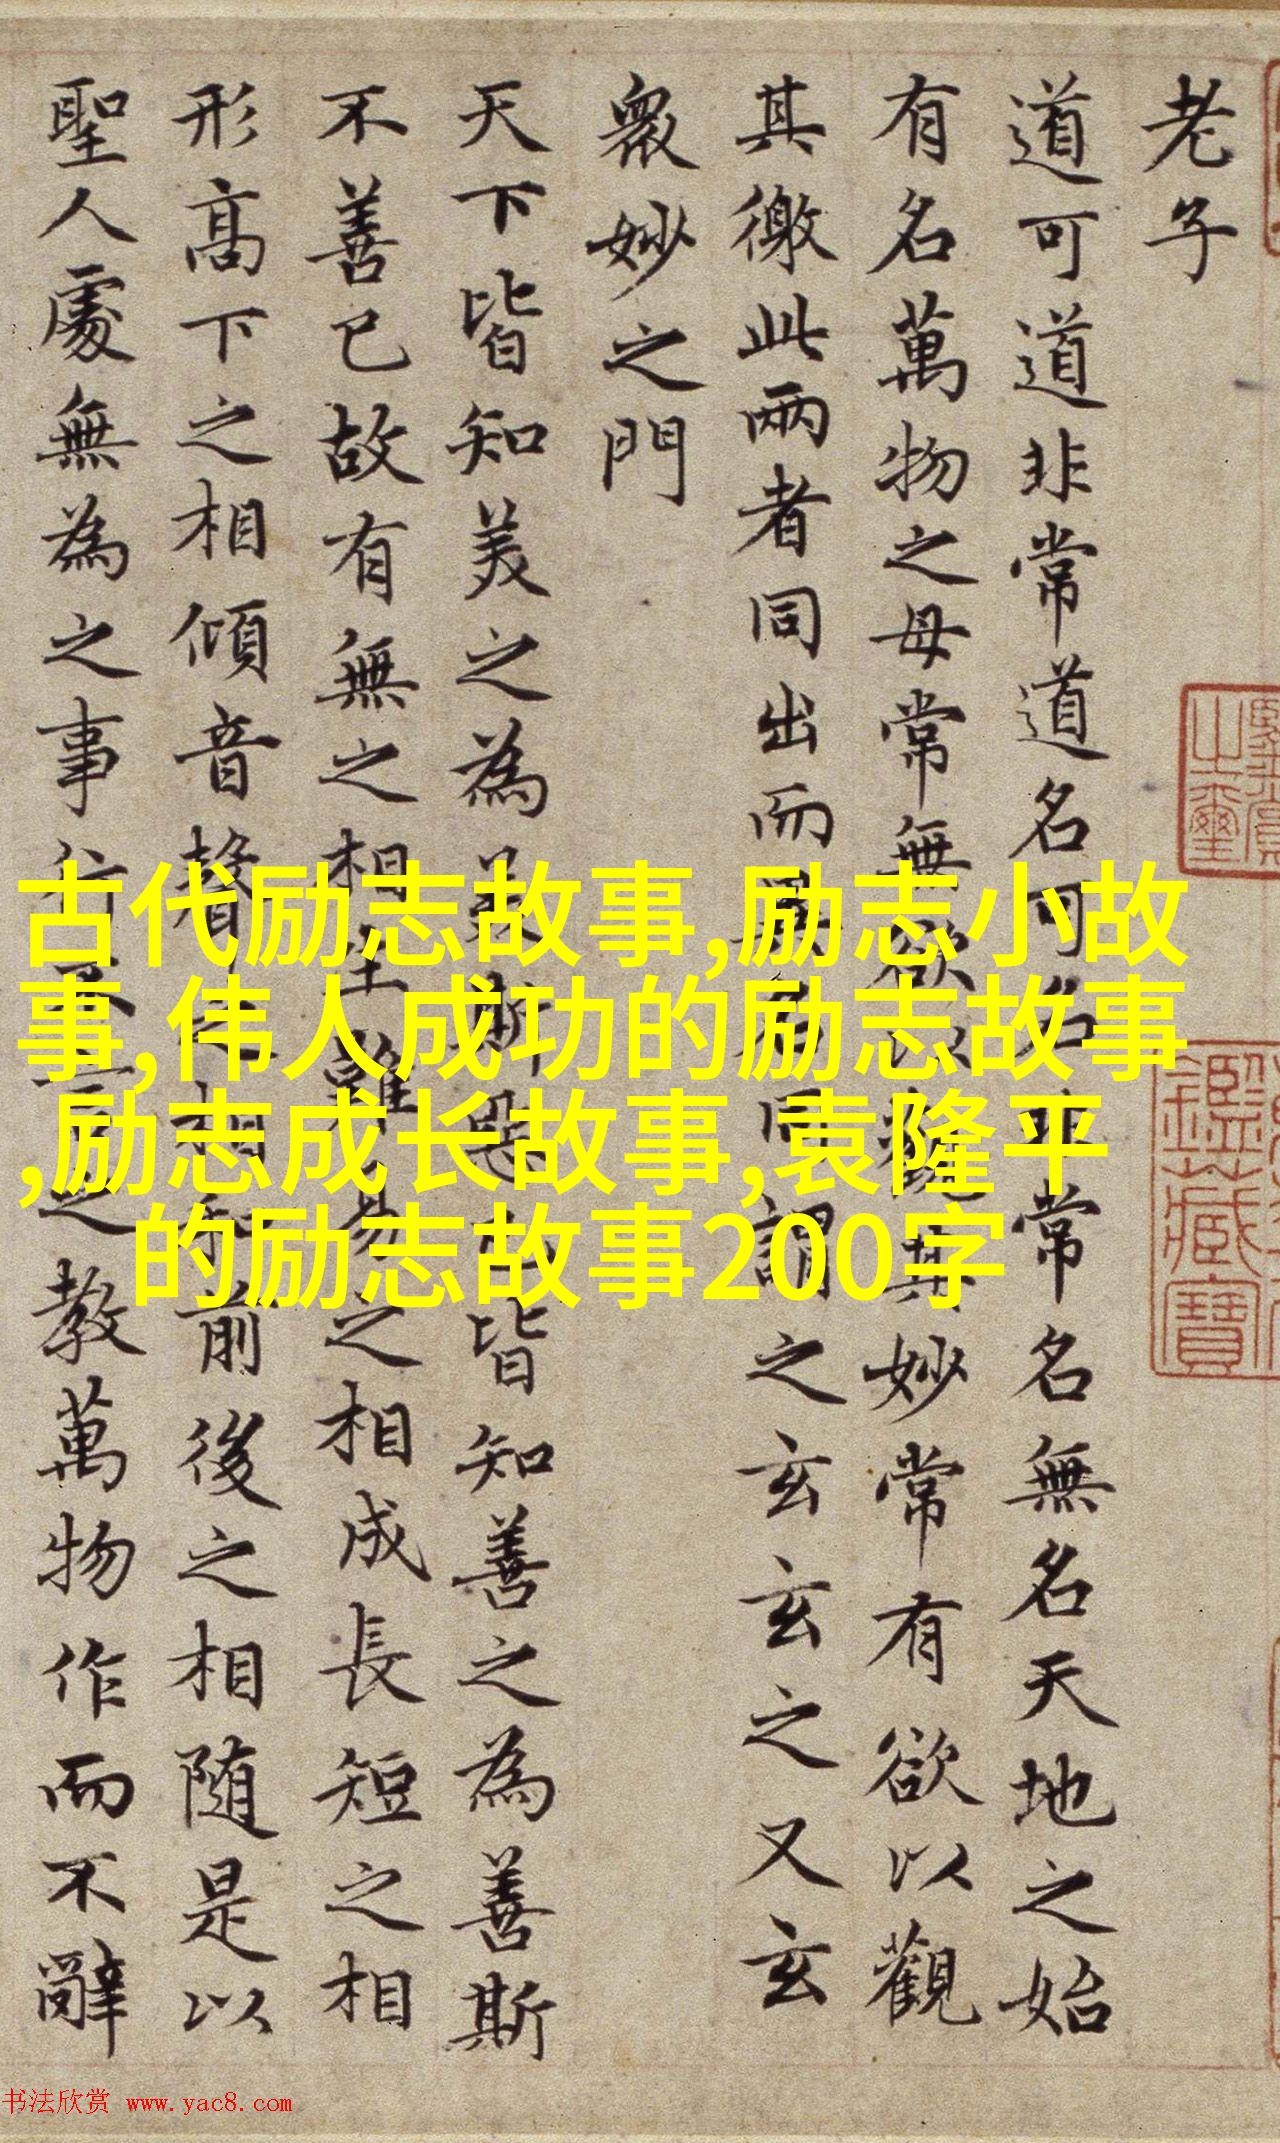 老子
道可道非常道名可名非常名無名天地之始
有名萬物之母常無欲以觀其妙常有欲以觀
其徼此兩者同出而異名同謂之玄玄之又玄
衆妙之門
天下皆知美之為美斯惡已皆知善之為善斯
不善已故有無之相生難易之相成長短之相
形高下之相傾音聲之相和前後之相随是以
聖人處無為之事行不言之教萬物作而不辭
古代励志故事,励志小故
事,伟人成功的励志故事
,励志成长故事,袁隆平
的励志故事200字
鑑藏寶
书法欣赏 www.yac8.com